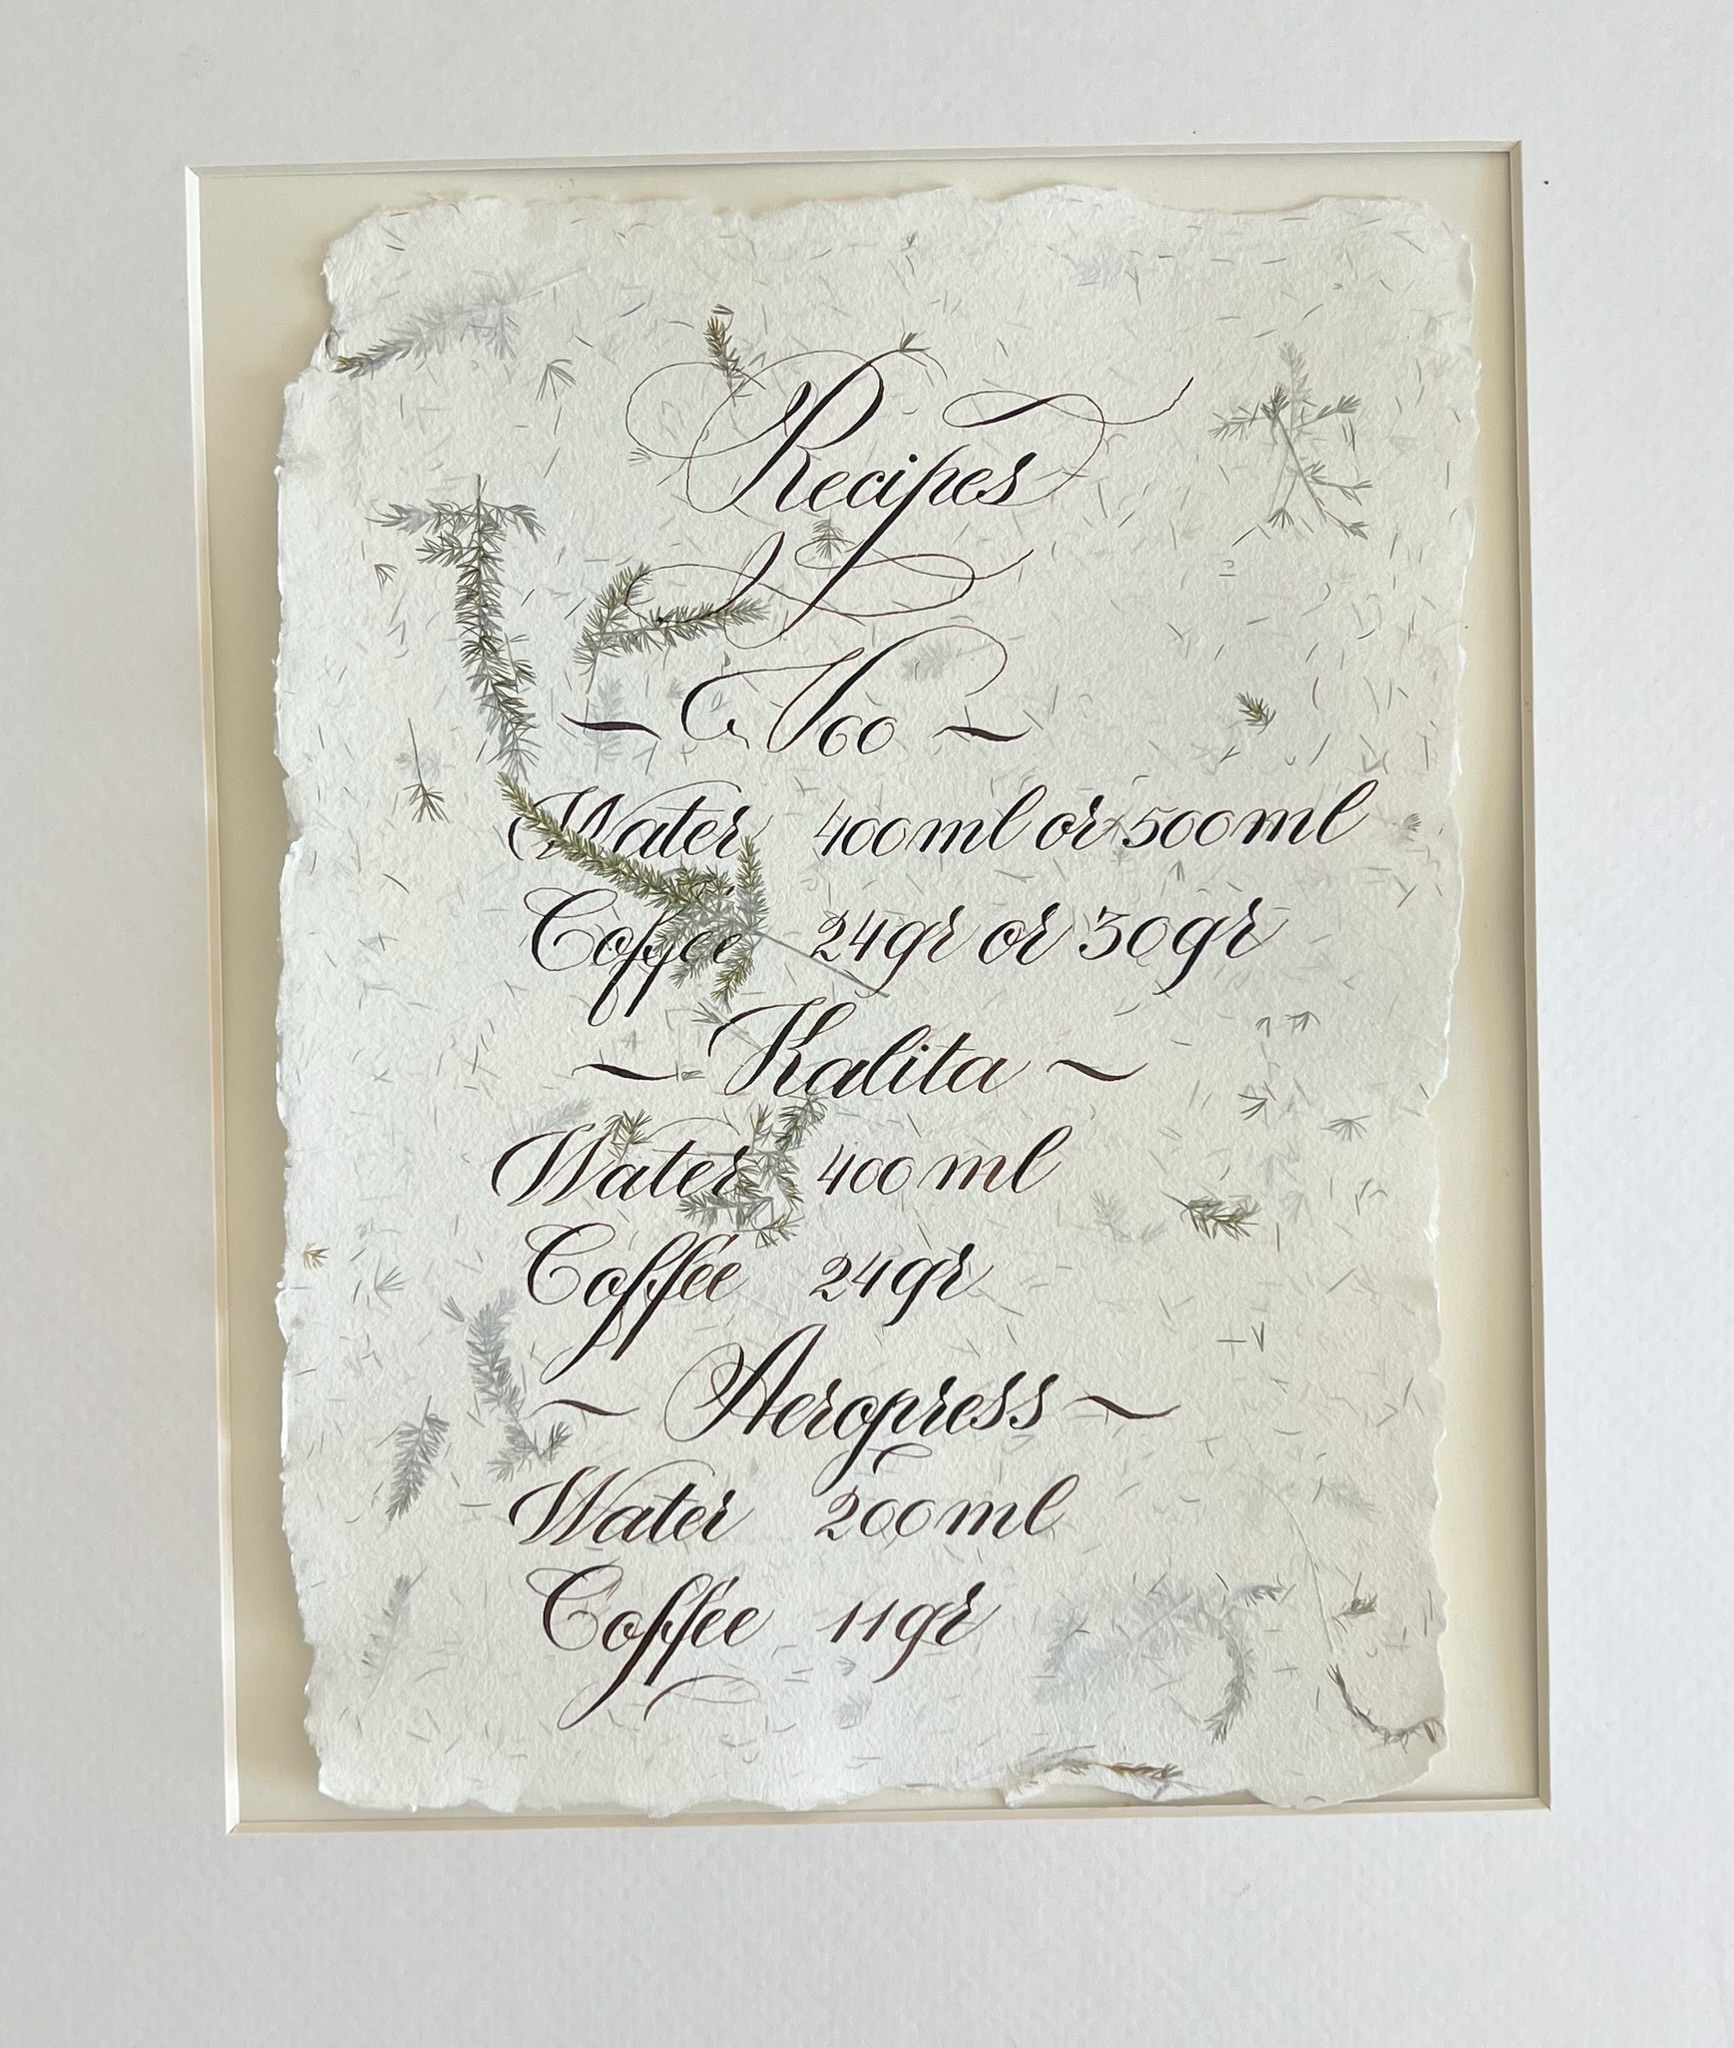 Recipes
~ V60 ~
Water 400ml or 500ml
Coffee 24gr or 30gr
~ Kalita ~
Water 400 ml
Coffee 24gr
~ Aeropress ~
Water 200ml
Coffee 11gr